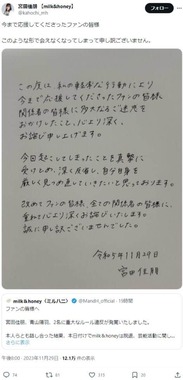 宮田佳朋 【milk&honey】
@kahochi_mh
今まで応援してくださったファンの皆様
このような形で会えなくなってしまって申し訳ございません。
この度は、私の軽率な行動により
今まで応援してくださったファンの皆様、
関係者の皆様に多大なるご迷惑を
おかけしたこと、心より深く、
お詫び申し上げます。
今回起こしてしまったことを真摯に
受け止め、深く反省し、自分自身を
厳しく見つめ直していきたいと思っております。
改めてファンの皆様、全ての関係者の皆様に、
重ねて心より深くお詫びいたします。
誠に申し訳ございませんでした。
令和5年11月29日
宮田佳朋
milk&honey（ミルハニ）
19時間
ファンの皆様へ
宮田佳朋、青山蓮羽、2名に重大なルール違反が発覚いたしました。
本人らとも話し合った結果、本日付けでmilk&honeyは脱退、芸能活動に関し…
さらに表示
午後9:00 · 2023年11月29日 · 12.1万 件の表示
74
815
315